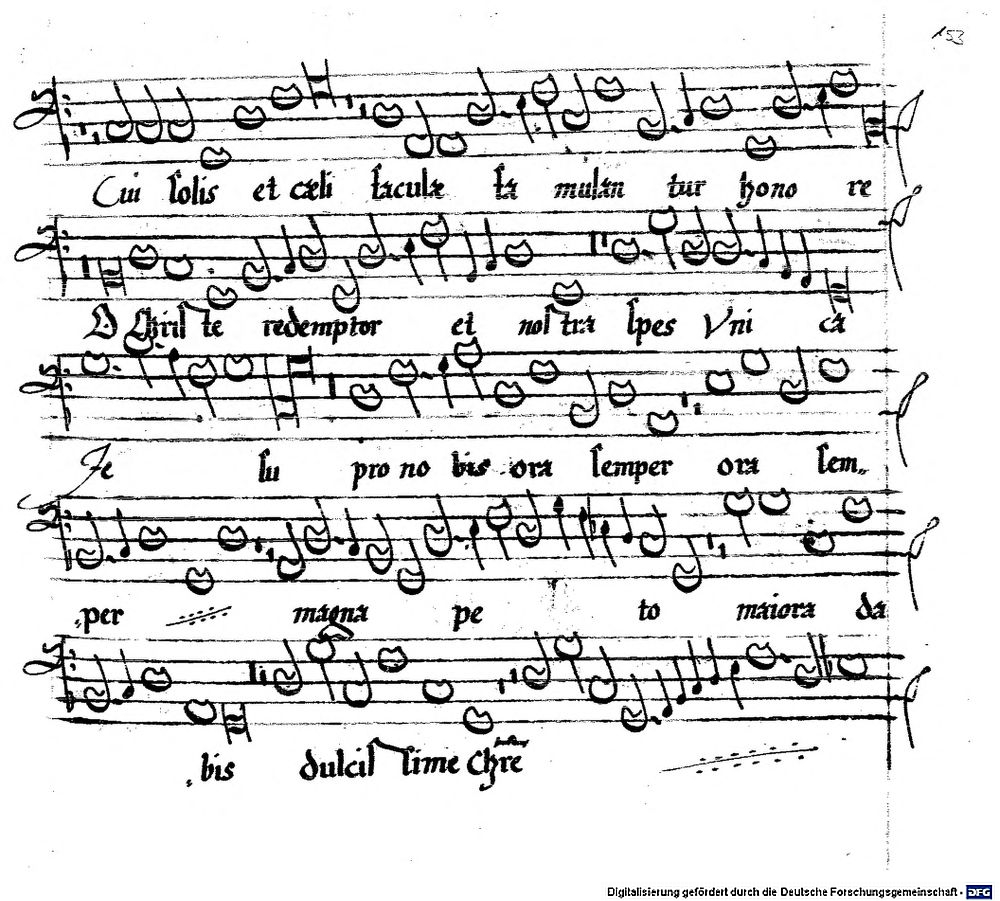 153
Cui solis et cæli faculæ fa mulan tur hono re
O Chris te redemptor et nos tra spes Vni ca
Je su pro no bis ora semper ora sem-
per magna pe to maiora da
bis dulcis sime Chre
Digitalisierung gefördert durch die Deutsche Forschungsgemeinschaft - DFG